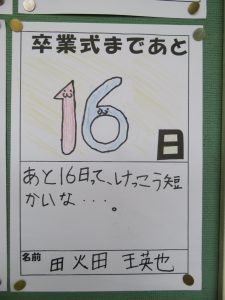 卒業式まであと
16
日
あと16日って、けっこう短
かいな・・・。
名前 田火田 王英也